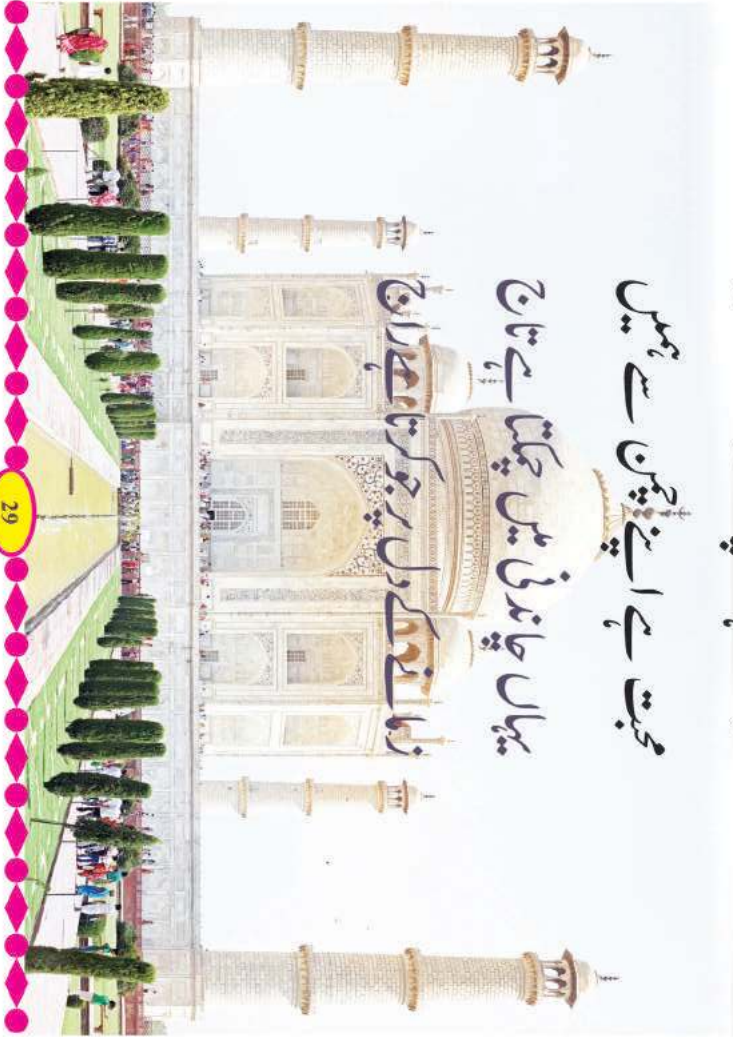 محبت ہے اپنے چمن سے ہمیں
یہاں چاندنی میں چمکتا ہے تاج
زمانے کے دل پر جو کرتا ہے راج
29